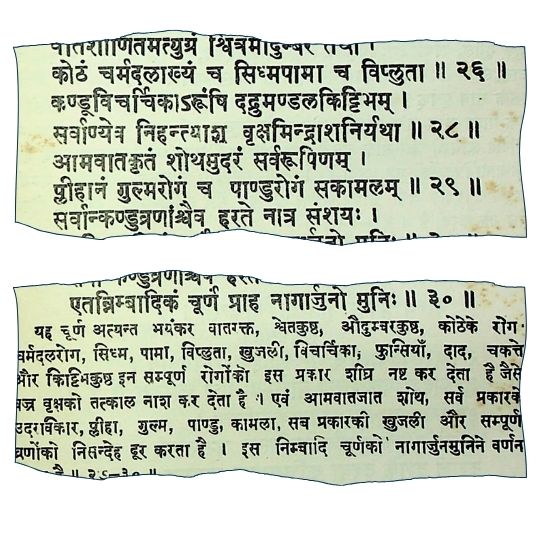 वातशोणितमत्युग्रं श्वित्रमौदुम्बरं तथा ।
कोठं चर्मदलाख्यं च सिध्मपामा च विप्लुता ॥ २६ ॥
कण्डूविचर्चिकाऽरूंषि दद्रुमण्डलकिट्टिभम् ।
सर्वाण्येव निहन्त्याशु वृक्षमिन्द्राशनिर्यथा ॥ २८ ॥
आमवातकृतं शोथमुदरं सर्वरूपिणम् ।
प्लीहानं गुल्मरोगं च पाण्डुरोगं सकामलम् ॥ २९ ॥
सर्वान्कण्डुव्रणांश्चैव हरते नात्र संशयः ।
एतन्निम्बादिकं चूर्णं प्राह नागार्जुनो मुनिः ॥ ३० ॥
यह चूर्ण अत्यन्त भयंकर वातरक्त, श्वेतकुष्ठ, औदुम्बरकुष्ठ, कोठेके रोग-
चर्मदलरोग, सिध्म, पामा, विप्लुता, खुजली, विचर्चिका, फुन्सियाँ, दाद, चकत्ते
और किट्टिभकुष्ठ इन सम्पूर्ण रोगोंको इस प्रकार शीघ्र नष्ट कर देता है जैसे
वज्र वृक्षको तत्काल नाश कर देता है । एवं आमवातजात शोथ, सर्व प्रकारके
उदरविकार, प्लीहा, गुल्म, पाण्डु, कामला, सब प्रकारकी खुजली और सम्पूर्ण
व्रणोंको निसन्देह दूर करता है । इस निम्बादि चूर्णको नागार्जुनमुनिने वर्णन